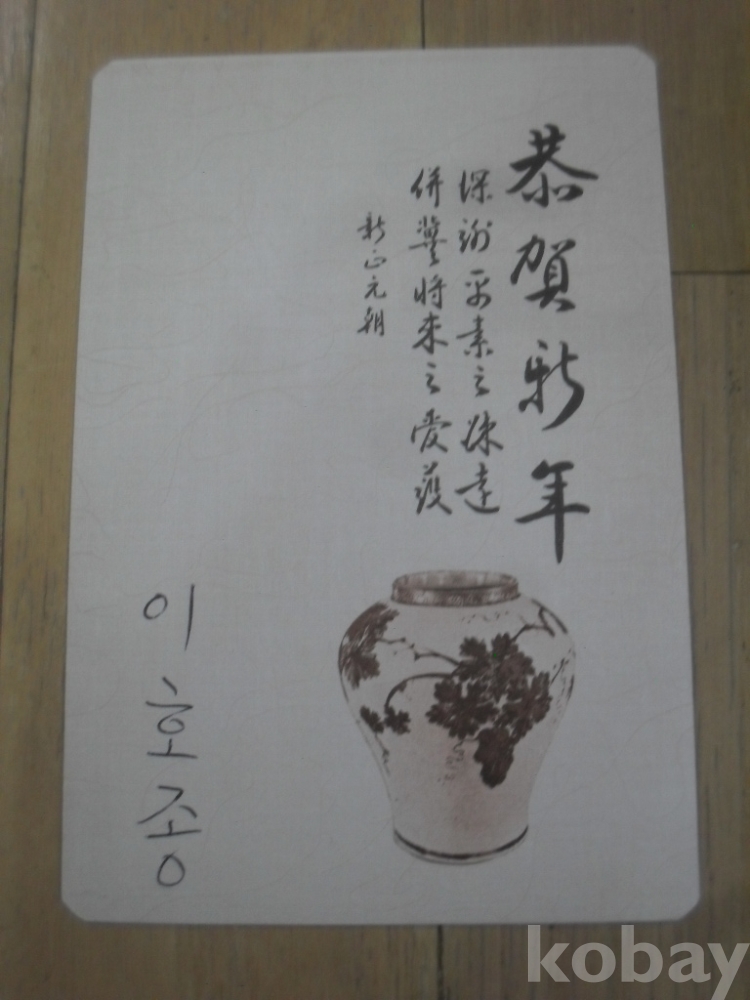 恭賀新年
深謝平素之疎遠
倂冀將來之愛護
新正元朝
이호종
kobay